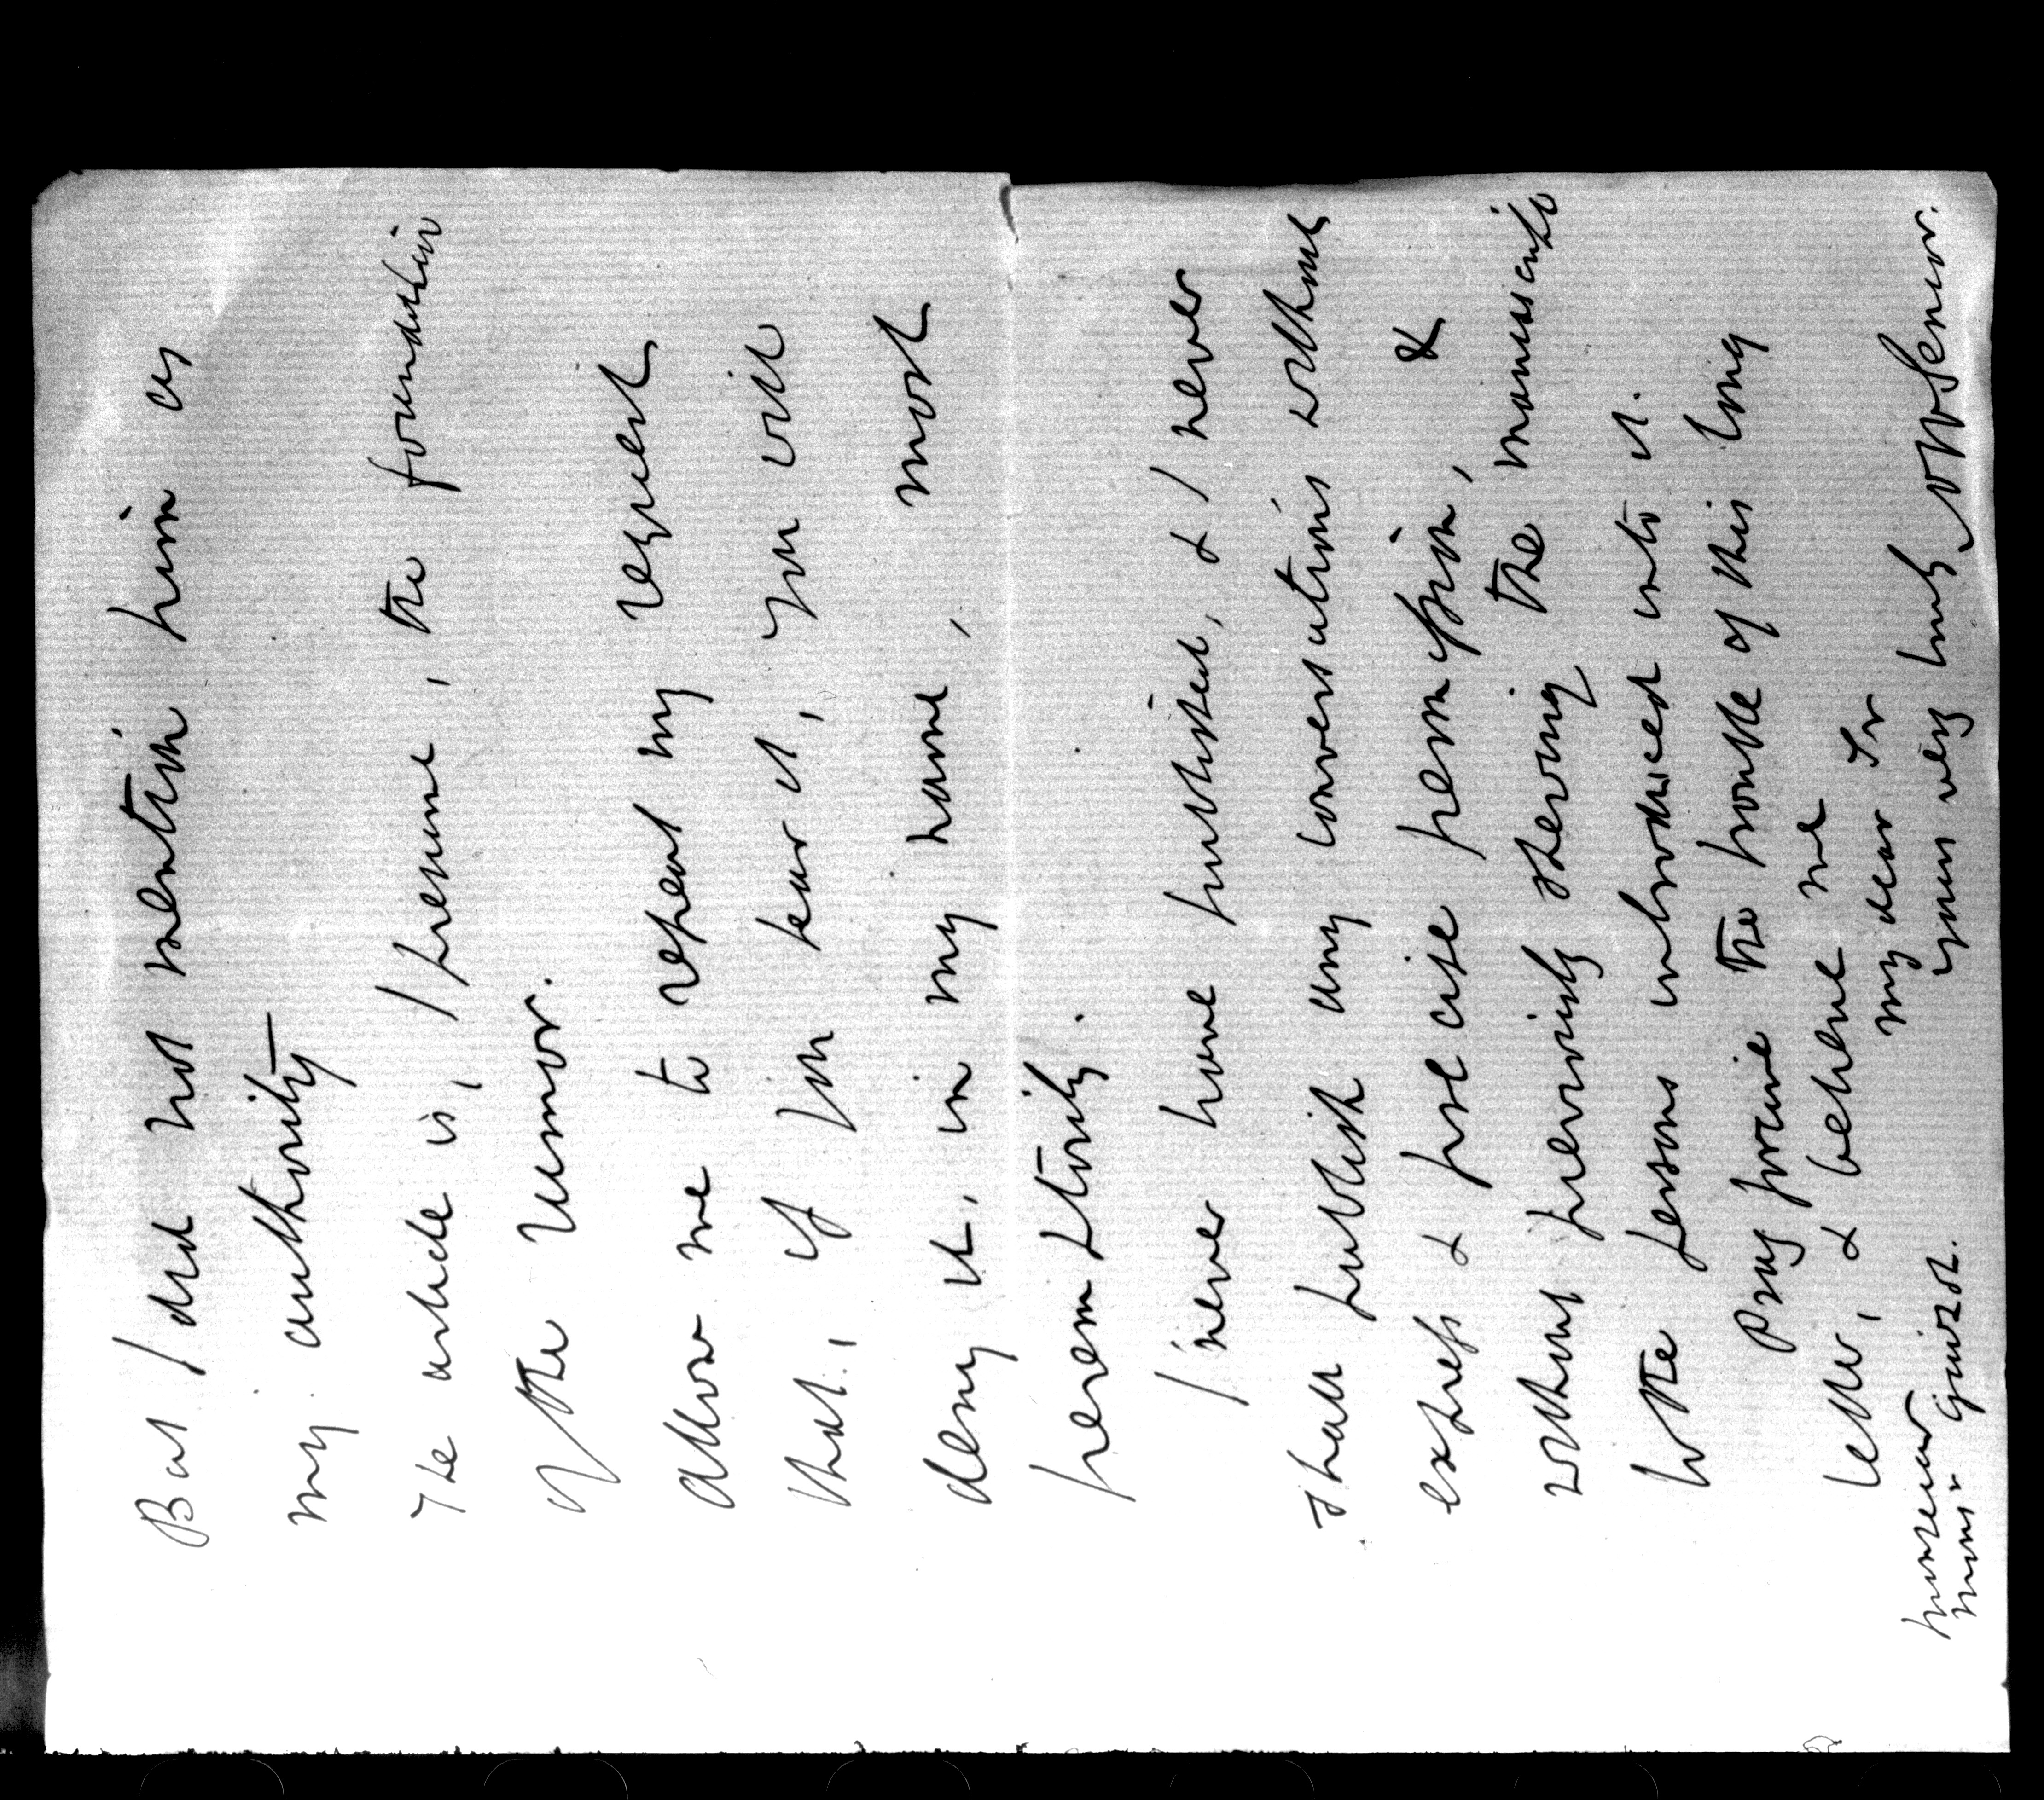 But I did not mention him as
my authority—
The article is, I presume, the foundation
of the rumor.
Allow me to repeat my request
that, if you hear it, you will
deny it, in my name, most
peremptorily.
I never have published, & I never
shall publish any conversations without
express & precise permission, &
without previously shewing the manuscripts
to the persons introduced into it.
Pray forgive the trouble of this long
letter, & believe me
my dear Sir
yours very truly NWSenior.
Monsieur
Monsr Guizot.